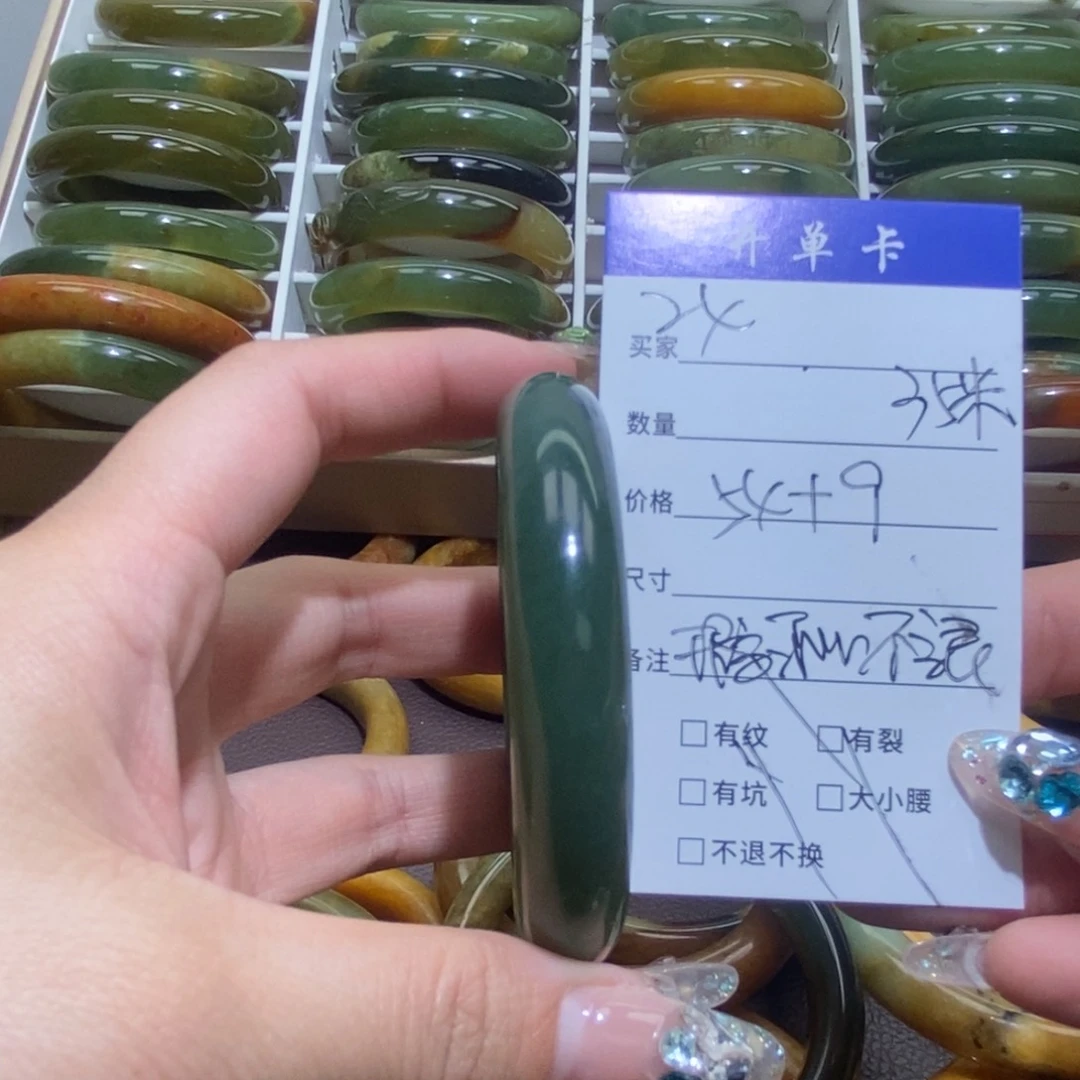 开单卡
买家 24
数量
价格 54+9
尺寸
备注
□有纹 □有裂
□有坑 □大小腰
□不退不换